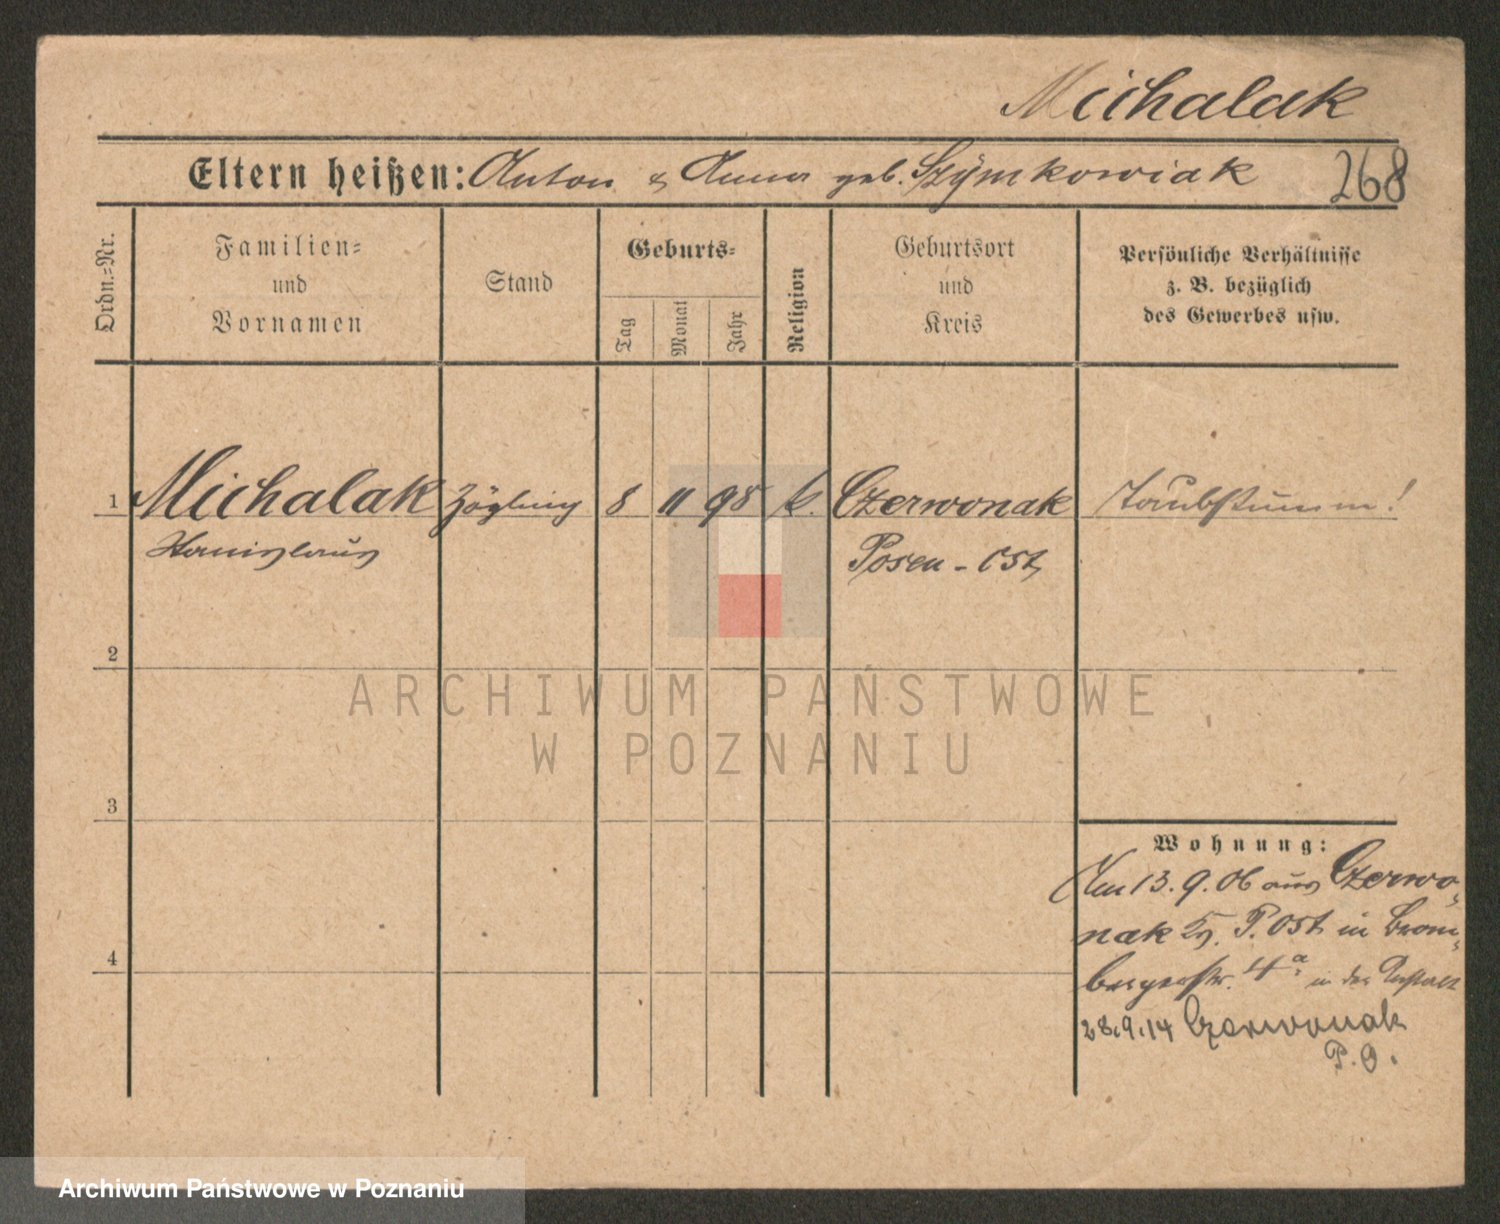 Michalak
Eltern heißen: Anton & Anna geb. Szÿmkowiak 268
Ordn.=Nr.
Familien=
und
Vornamen
Stand
Geburts=
Tag
Monat
Jahr
Religion
Geburtsort
und
Kreis
Persönliche Verhältnisse
z. B. bezüglich
des Gewerbes usw.
1 Michalak Zögling 8 11 98 k. Czerwonak Taubstumm!
Stanislaus Posen - Ost
2
ARCHIWUM PAŃSTWOWE
W POZNANIU
3
Wohnung:
Am 13.9.06 aus Czerwo-
nak Kr. P. Ost in Brom-
bergerstr. 4a in der Anstalt
4
28.9.14 Czerwonak
P.O.
Archiwum Państwowe w Poznaniu